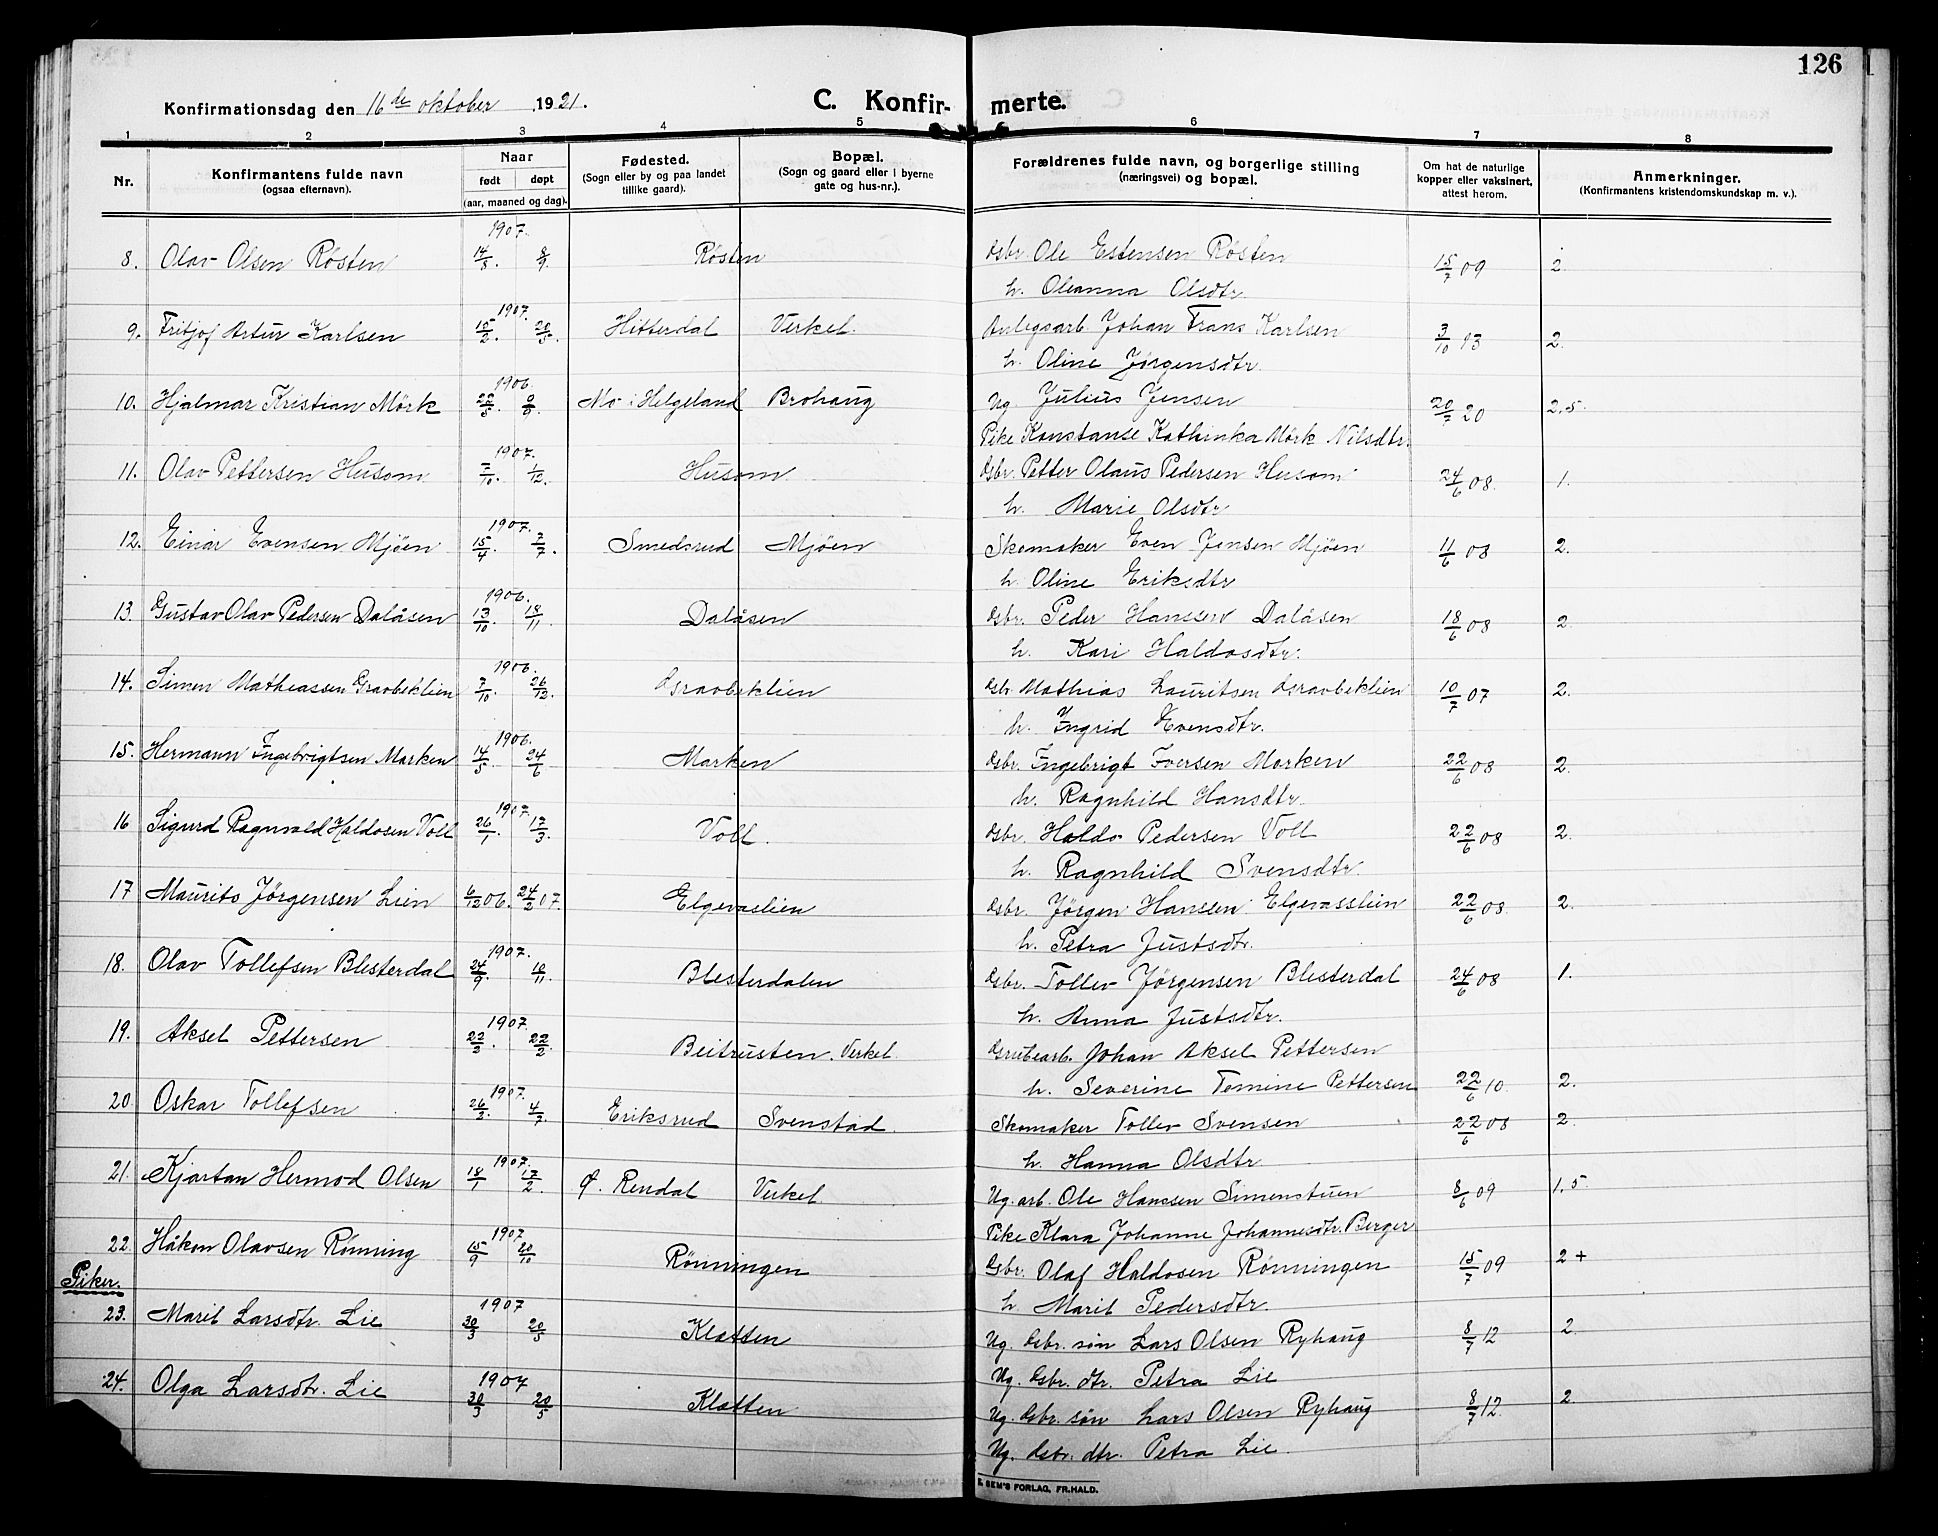 126
Konfirmationsdag den 16de oktober 1921.
C. Konfir- merte.
1 2 3 4 5 6 7 8
Nr.
Konfirmantens fulde navn
(ogsaa efternavn).
Naar
født døpt
(aar, maaned og dag).
Fødested.
(Sogn eller by og paa landet
tillike gaard).
Bopæl.
(Sogn og gaard eller i byerne
gate og hus-nr.).
Forældrenes fulde navn, og borgerlige stilling
(næringsvei) og bopæl.
Om hat de naturlige
kopper eller vaksinert,
attest herom.
Anmerkninger.
(Konfirmantens kristendomskundskap m. v.).
1907.
8. Olav Olsen Røsten 14/8. 8/9. Røsten Gbr. Ole Estensen Røsten 15/7 09 2.
h. Oleanna Olsdtr.
1907.
9. Fritjof Artur Karlsen 10/2. 20/5. Hitterdal Verket. Anlegsarb. Johan Frans Karlsen 3/10 13 2.
h. Oline Jørgensdtr.
1906.
10. Hjalmar Kristian Mörk 22/5. 9/9. Mo i Helgeland Brohaug Ug. Julius Jensen 20/7 20 2,5.
Pike Konstanse Kathinka Mörk Nilsdtr.
1907.
11. Olav Pettersen Husom 7/10. 1/12. Husom Gbr. Petter Olaus Pedersen Husom 24/6 08. 1.
h. Marie Olsdtr
1907.
12. Einar Evensen Mjöen 15/4. 7/7. Smedsrud Mjöen Skomaker Even Jensen Mjöen 11/6 08 2.
h. Oline Eriksdtr
1906.
13. Gustav Olav Pedersen Dalåsen 13/10. 18/11. Dalåsen Gbr. Peder Hanssen Dalåsen 18/6 08 2.
h. Kari Haldosdtr.
1906.
14. Simen Matheassen Gravbeklien 7/10. 26/12. Gravbeklien Gbr. Mathias Lauritsen Gravbeklien 10/7 07 2.
h. Ingrid Evensdtr.
1906.
15. Hermann Ingebrigtsen Morken 14/5. 24/6 Morken Gbr. Ingebrigt Iversen Morken 22/6 08 2.
h. Ragnhild Hansdtr.
1907.
16 Sigurd Ragnvald Haldosen Voll 26/1. 17/3. Voll. Gbr. Haldo Pedersen Voll 22/6 08 2.
h. Ragnhild Svensdtr.
17 Maurits Jørgensen Lien 6/12 06. 24/2 07. Elgevaslien Gbr. Jørgen Hanssen Elgevasslien 22/6 08 2.
h. Petra Justsdtr.
1907.
18. Olav Tollefsen Blesterdal 24/9. 10/11. Blesterdalen Gbr. Tollev Jørgensen Blesterdal 24/6 08 1.
h. Anna Justsdtr.
1907.
19. Aksel Pettersen 22/2. 22/2. Beitrusten. Verket. Grubearb. Johan Aksel Pettersen
h. Severine Temine Pettersen 22/6 10. 2.
1907.
20. Oskar Tollefsen 26/2. 4/7. Eriksrud Svenstad. Skomaker Tollev Svensen 22/6 08 2.
h. Hanna Olsdtr.
1907.
21. Kjartan Hermod Olsen 18/1 17/2. Ø. Rendal Verket Ug. arb. Ole Hanssen Simenstuen 8/6 09 1,5.
Pike Klara Johanne Johannesdtr. Berger
1907
22. Håkon Olavsen Rönning 15/9 20/10 Rönningen Gbr. Olaf Haldosen Rönningen 15/7 09 2 +
h. Marit Pedersdtr.
Piker.
1907
23. Marit Larsdtr. Lie 30/3 20/5 Kletten Ug. Gbr. sön Lars Olsen Ryhaug 8/7 12 2.
Ug. Gbr. dtr. Petra Lie
1907
24. Olga Larsdtr. Lie 30/3 20/5 Kletten Ug. Gbr. sön Lars Olsen Ryhaug 8/7 12. 2.
Ug. Gbr. dtr. Petra Lie.
E. SEM'S FORLAG, FR.HALD.